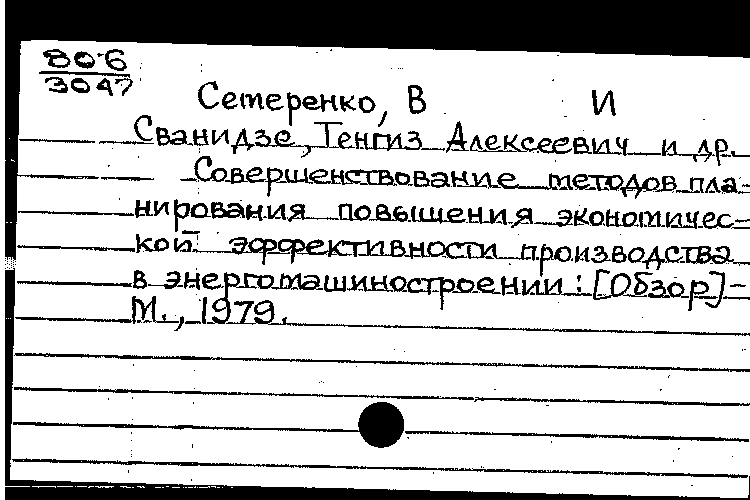 80-6
3047
Сетеренко, В И
Сванидзе, Тенгиз Алексеевич и др.
Совершенствование методов пла-
нирования повышения экономичес-
кой эффективности производства
в энергомашиностроении: [Обзор]-
М., 1979.